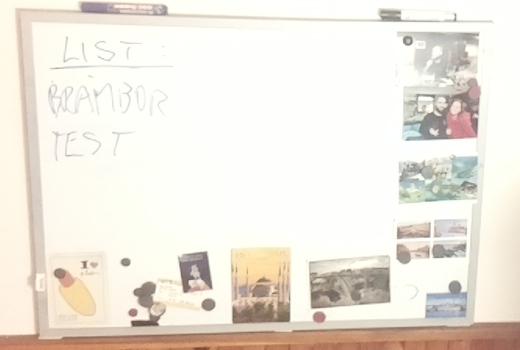 LIST:
BRAMBOR
TEST
I